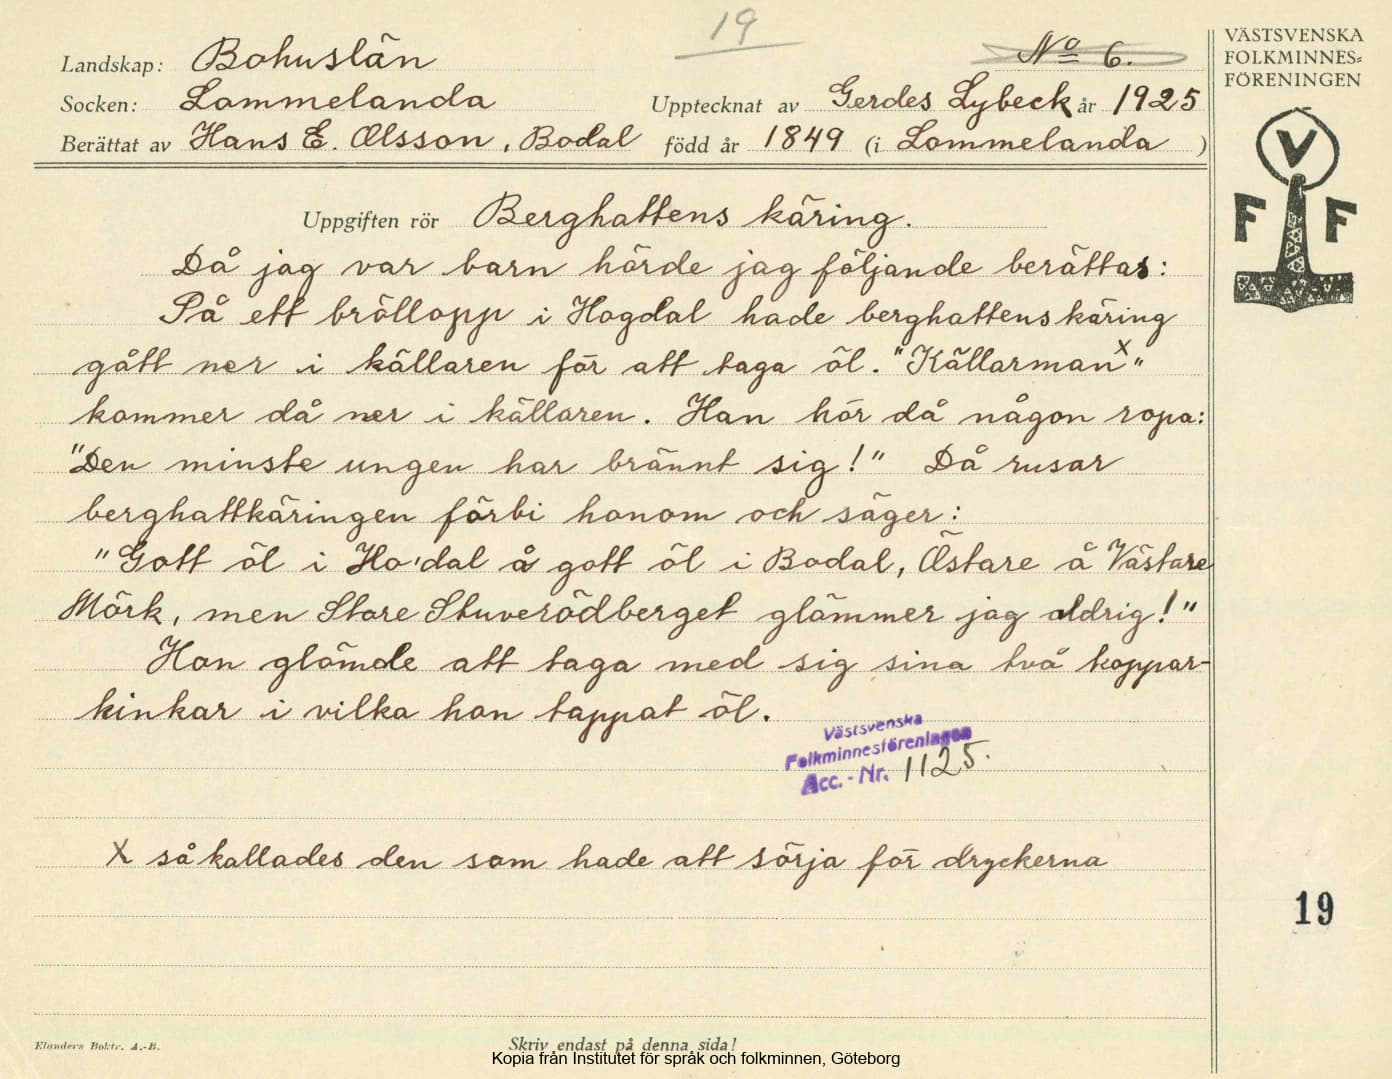 19
Landskap: Bohuslän
No 6.
VÄSTSVENSKA
FOLKMINNES=
FÖRENINGEN
Socken: Lommelanda
Upptecknat av Gerdes Lybeck år 1925
Berättat av Hans E. Olsson, Bodal född år 1849 (i Lommelanda )
V
F F
Uppgiften rör Berghattens käring.
Då jag var barn hörde jag följande berättas:
På ett bröllopp i Hogdal hade berghattens käring
gått ner i källaren för att taga öl. "Källarman x"
kommer då ner i källaren. Han hör då någon ropa:
"Den minste ungen har bränt sig!" Då rusar
berghattkäringen förbi honom och säger:
"Gott öl i Ho'dal å gott öl i Bodal, Östare å Västare
Mörk, men Store Stuverödberget glömmer jag aldrig!"
Hon glömde att taga med sig sina två koppar-
kinkar i vilka hon tappat öl.
Västsvenska
Folkminnesföreningen
Acc. - Nr. 1125.
X så kallades den som hade att sörja för dryckerna
19
Elanders Boktr. A.-B.
Skriv endast på denna sida!
Kopia från Institutet för språk och folkminnen, Göteborg